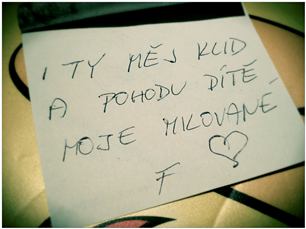 I TY MĚJ KLID
A POHODU DÍTĚ
MOJE MILOVANÉ
F